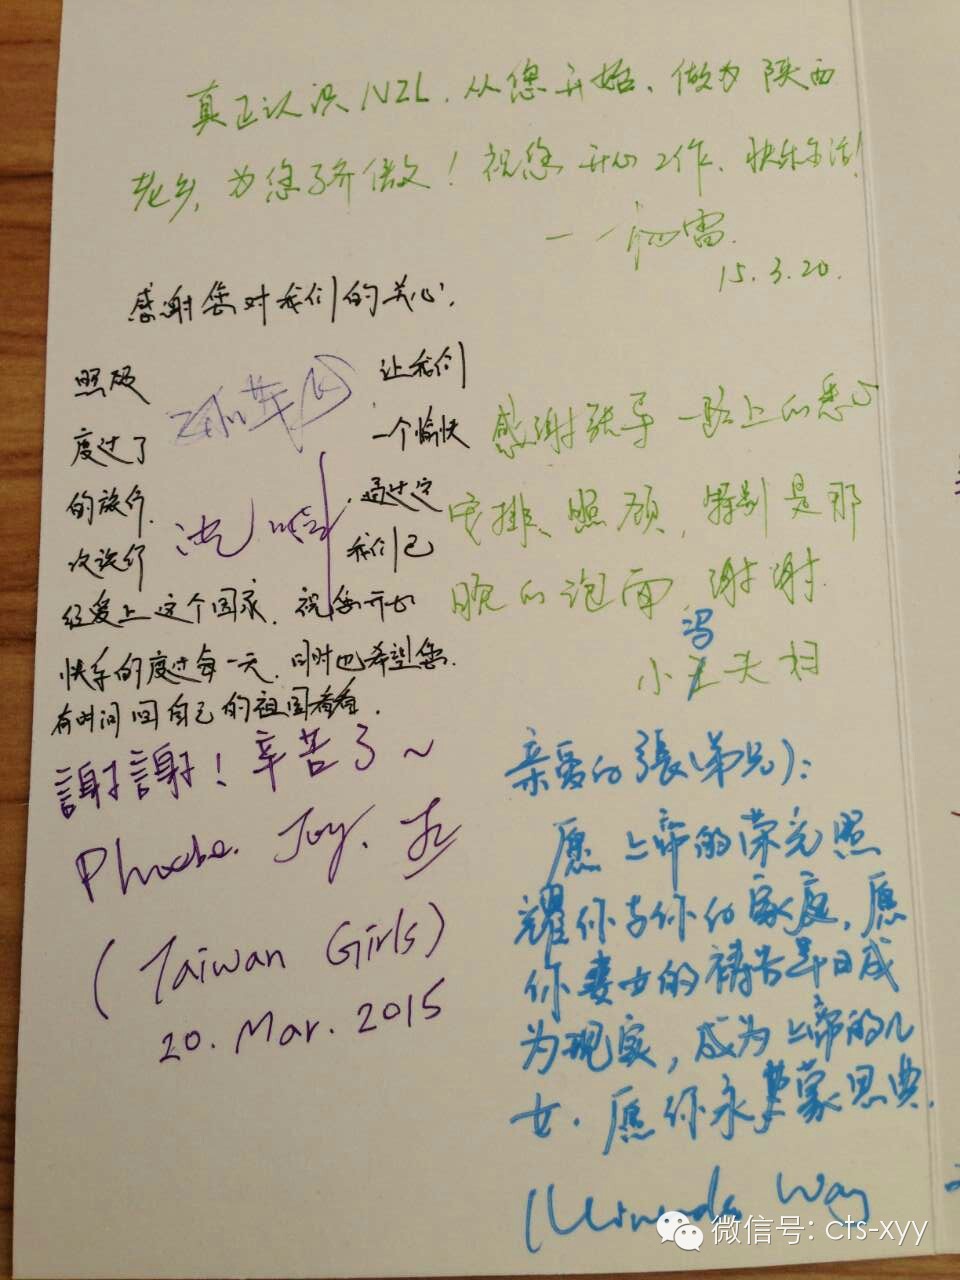 真正认识NZL,从您开始、做为陕西
老乡,为您骄傲!祝您开心工作、快乐生活!
15.3.20.
感谢您对我们的关心、
照顾 让我们
度过了 一个愉快
的旅行. 通过这
次旅行 我们已
经爱上这个国家. 祝您开心
快乐的度过每一天.同时也希望您
有时间回自己的祖国看看.
謝謝!辛苦了~
Phoebe. Joy.
(Taiwan Girls)
20. Mar. 2015
感谢张导一路上的悉心
安排、照顾,特别是那
晚的泡面,谢谢.
冯
小 夫妇
亲爱的張(弟兄):
愿上帝的荣光照
耀你与你的家庭,愿
你妻女的祷告早日成
为现实,成为上帝的儿
女.愿你永 蒙恩典.
Way
微信号: cts-xyy